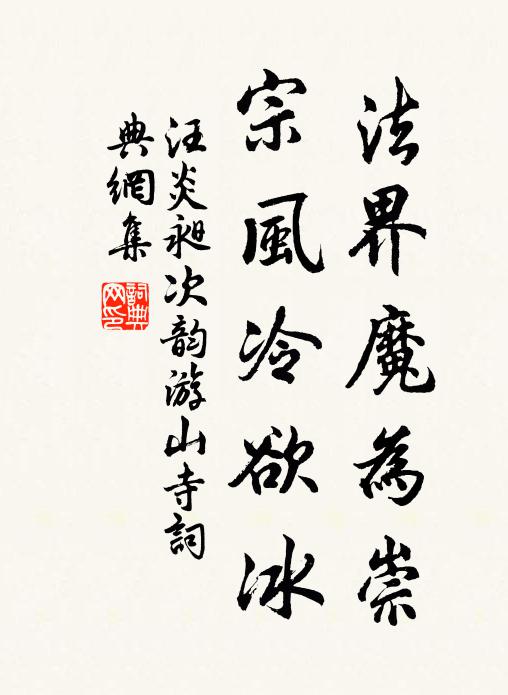 法界魔為崇
宗風冷欲冰
汪炎昶次韵游山寺詞
典網集
詞典網印